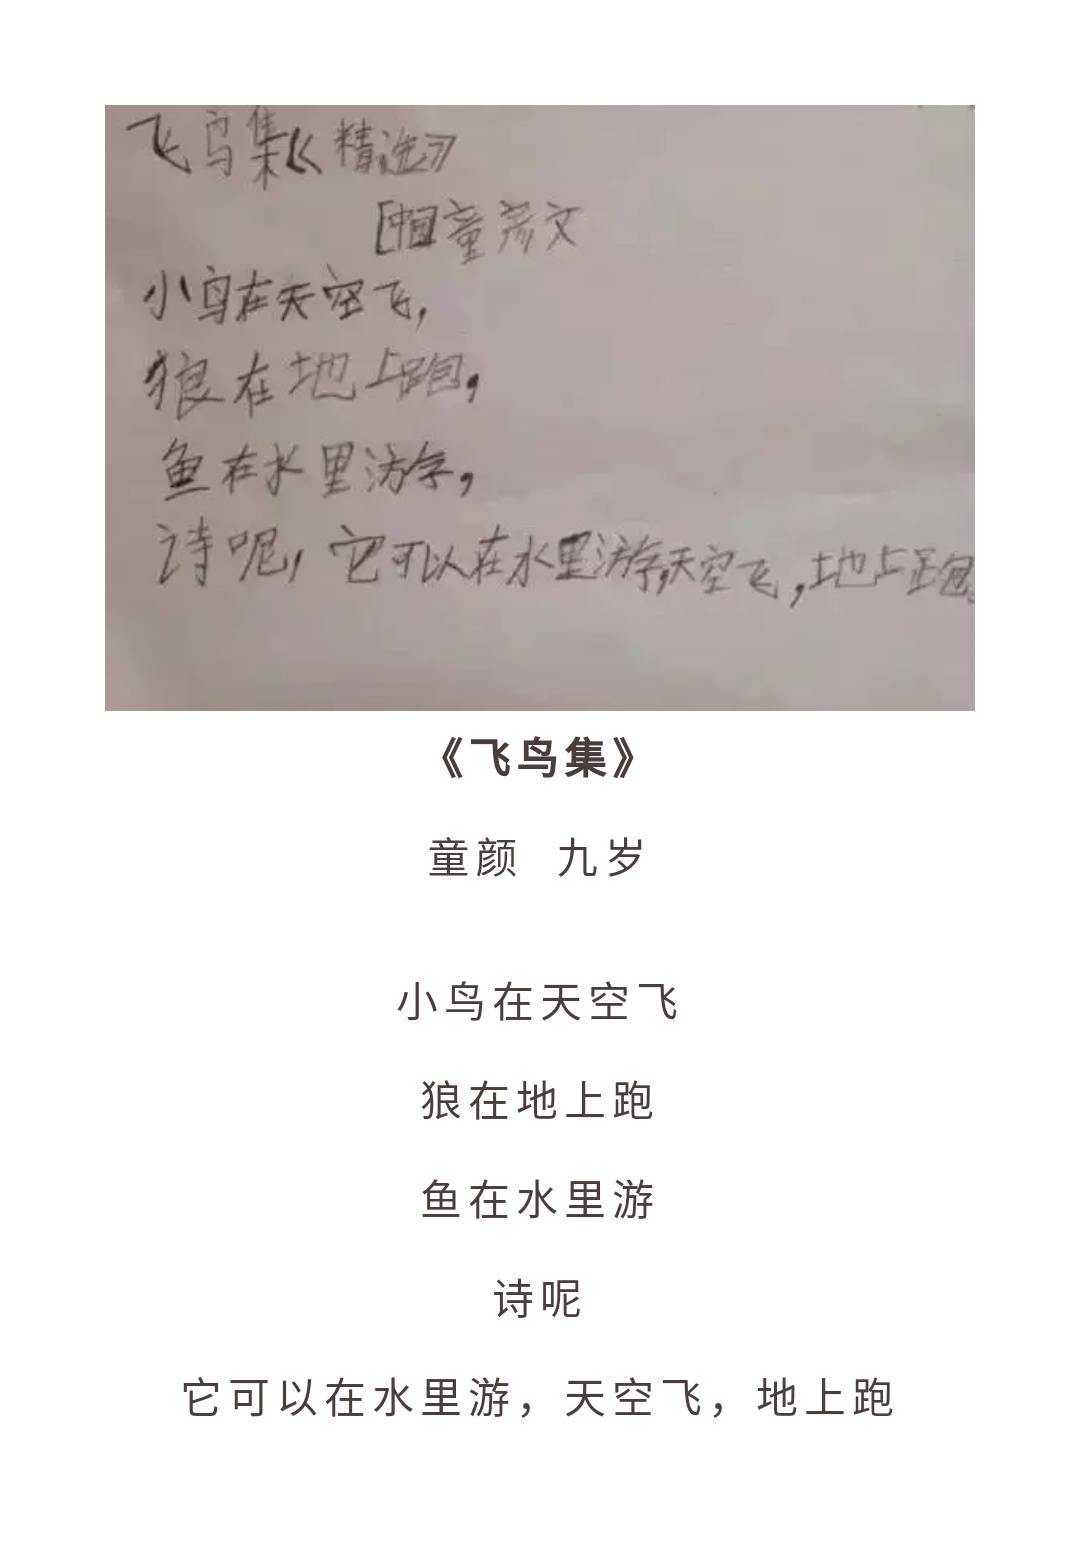 飞鸟集《精选》
[中国童彦文
小鸟在天空飞,
狼在地上跑,
鱼在水里游,
诗呢,它可以在水里游,天空飞,地上跑。
《飞鸟集》
童颜 九岁
小鸟在天空飞
狼在地上跑
鱼在水里游
诗呢
它可以在水里游，天空飞，地上跑